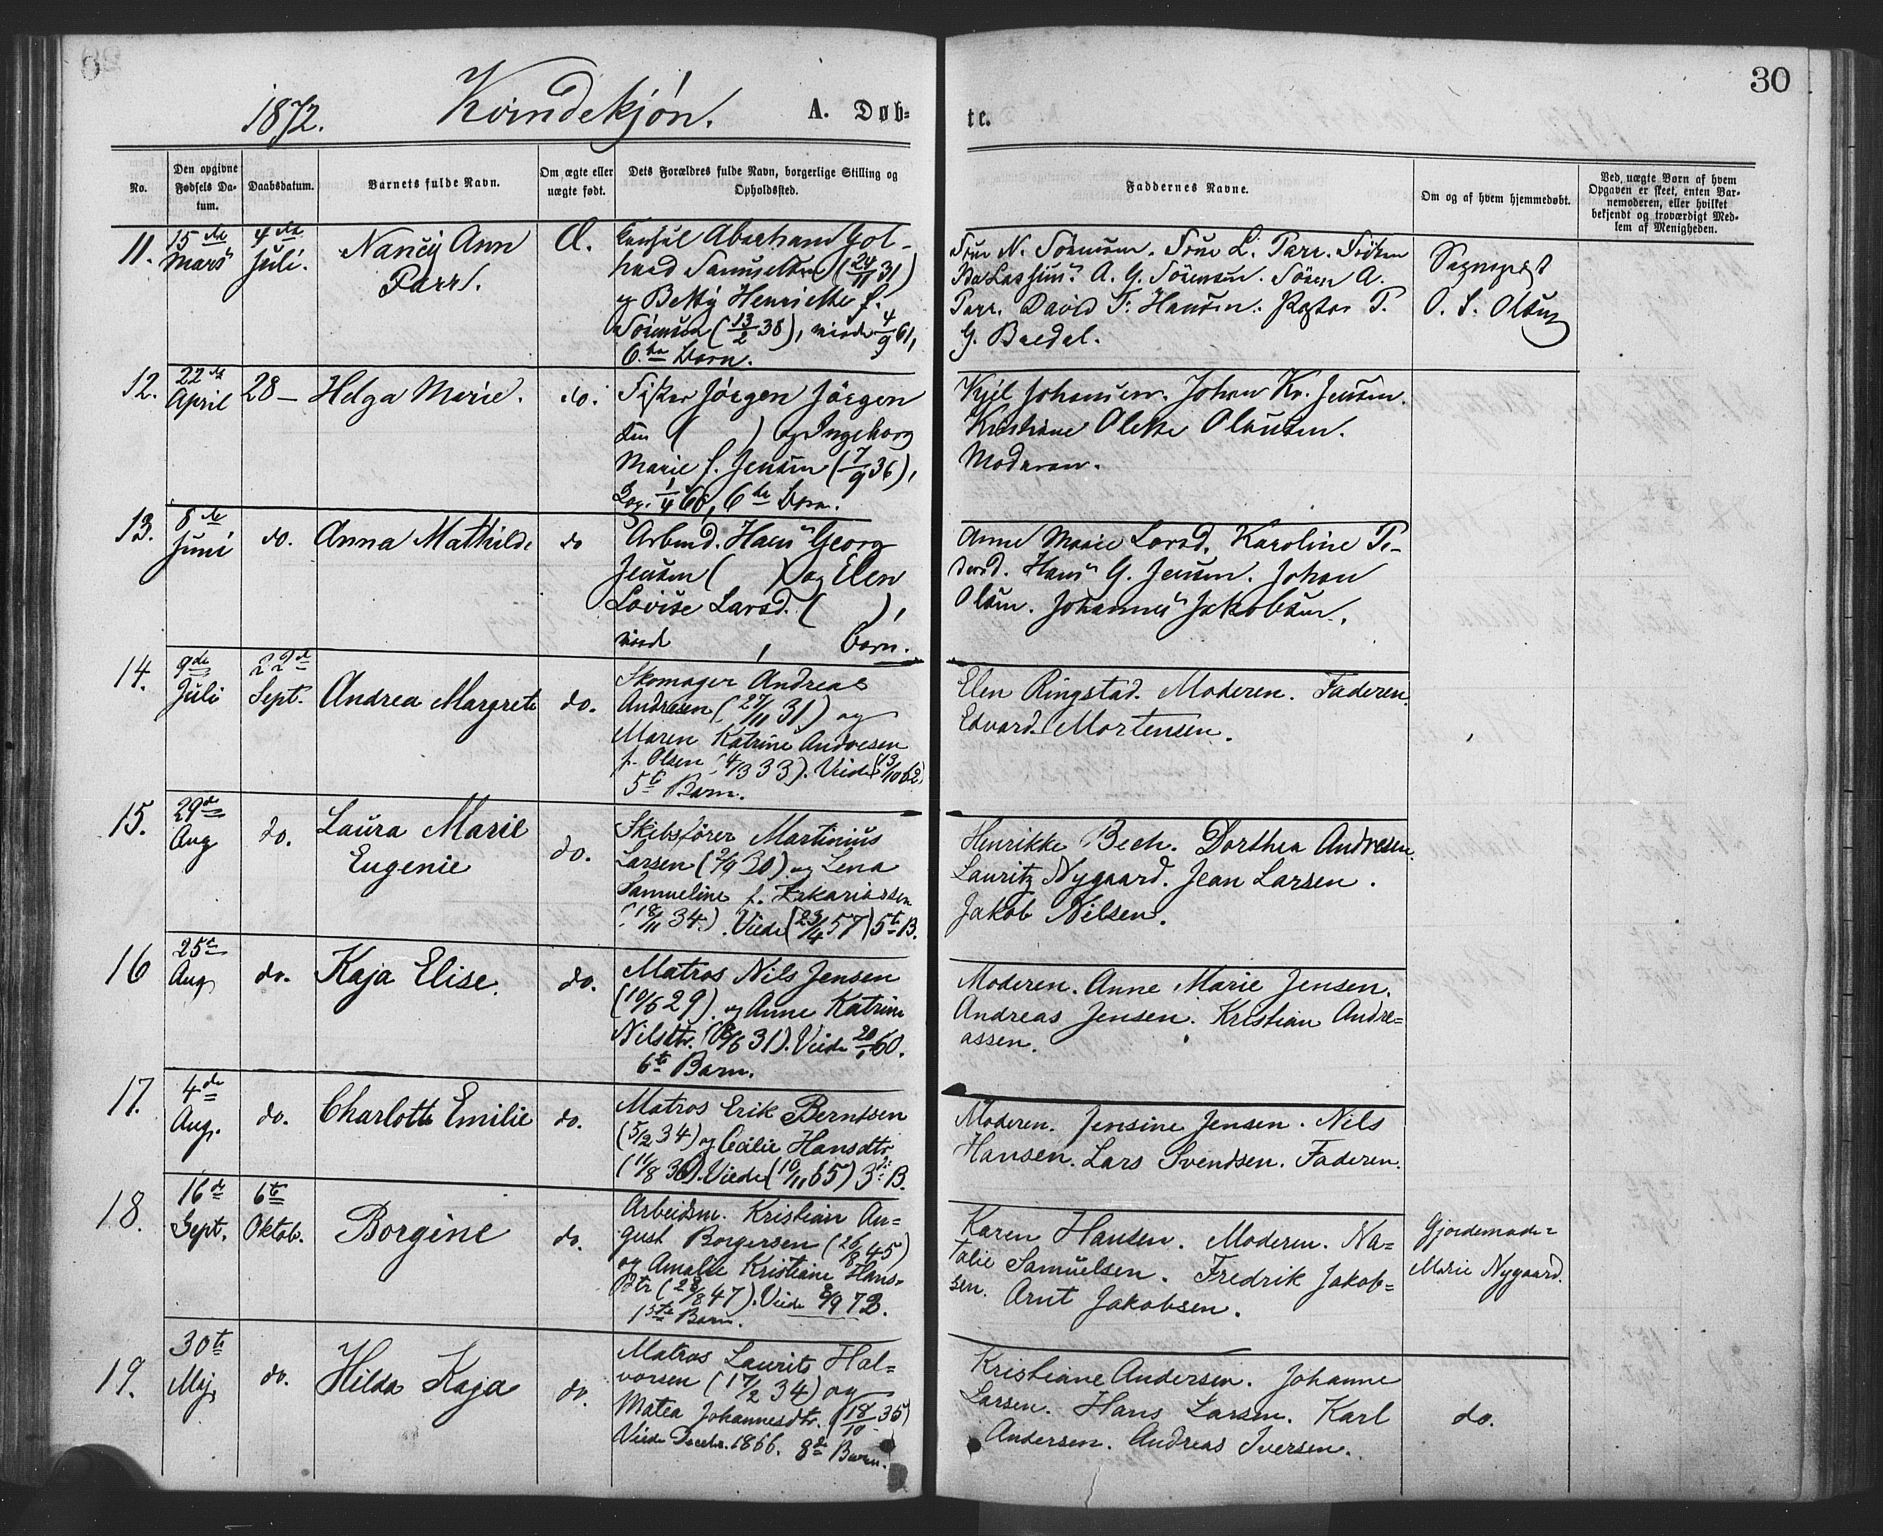 30
1872. Kvindekjøn. A. Døb-
te.
No.
Den opgivne
Fødsels Da-
tum.
Daabsdatum.
Barnets fulde Navn.
Om ægte eller
uægte født.
Dets Forældres fulde Navn, borgerlige Stilling og
Opholdssted.
Faddernes Navne.
Om og af hvem hjemmedøbt.
Ved uægte Børn af hvem
Opgaven er skeet, enten Bar-
nemoderen, eller hvilket
bekjendt og troværdigt Med-
lem af Menigheden.
11.
15de
Mars
4de
Juli.
Nancy Ann
Parr.
Æ.
Consul Abraham Got-
hard Samuelsen (24/11 31)
og Betty Henriette f.
Sørensen (13/2 38), viede 4/9 61,
6.te Barn.
Frue N. Sørensen. Frue L. Parr. Frøken
A. G. Sørensen. Søren A.
Parr. David T. Hansen. Pastor T.
G. Bredal.
Sogneprest
O. S. Olsen
12.
22de
April
28 –
Helga Marie.
do.
Fisker Jørgen Jørgen
sen ( ) og Ingeborg
Marie f. Jensen (7/9 36),
1/4 60, 6te Barn.
Kjel Johansen. Johan Kr. Jensen.
Kristiane Olette Olausen.
Moderen.
13.
8de
Juni
do.
Anna Mathilde
do
Arbmd. Hans Georg
Jensen ( ) og Elen
Lovise Larsd. ( ),
viede , Barn.
Anne Marie Larsd. Karoline Pe-
dersd. Hans G. Jensen. Johan
Olsen. Johannes Jakobsen.
14.
9de
Juli
22de
Sept.
Andrea Margrete
do.
Skomager Andreas
Andresen (27/11 31) og
Maren Katrine Andresen
f. Olsen (4/3 33). Viede (13/10 62)
5te Barn.
Elen Ringstad. Moderen. Faderen.
Edvard Mortensen.
15.
29de
Aug
do.
Laura Marie
Eugenie
do.
Skibsfører Martinius
Larsen (2/9 30) og Lena
Samueline f. Zakariassen
(18/11 34.) Viede (23/4 57) 5te B.
Henrikke Bech. Dorthea Andresen.
Lauritz Nygaard. Jean Larsen.
Jakob Nilsen.
16
25de
Aug
do.
Kaja Elise.
do.
Matros Nils Jensen
(10/6 29) og Anne Katrine
Nilsdtr. (8/6 31). Viede 20/1 60.
6te Barn.
Moderen. Anne Marie Jensen.
Andreas Jensen. Kristian Andre=
assen.
17.
4de
Aug.
do.
Charlotte Emilie
do.
Matros Erik Berntsen
(5/2 34) og Cecilie Hansdtr
(11/8 36). Viede (10/11 65) 3die B.
Moderen. Jensine Jensen. Nils
Hansen. Lars Svendsen. Faderen.
18.
16de
Sept.
6te
Oktob.
Borgine
do.
Arbeidsm. Kristian Au=
gust Borgersen (26/8 45)
og Amalie Kristiane Hans-
dtr (28/8 47). Viede 8/9 72.
1ste Barn.
Karen Hansen. Moderen. Na=
talie Samuelsen. Fredrik Jakob=
sen. Arnt Jakobsen.
Gjordemade=
Marie Nygaard.
19.
30te
Maj,
do.
Hilda Kaja
do.
Matros Laurits Hal=
vorsen (17/2 34) og
Matea Johannesdtr. (18/10 35)
Viede Decebr. 1866. 8de Barn.
Kristiane Andersen. Johanne
Larsen. Hans Larsen. Karl
Andersen. Andreas Iversen.
do.